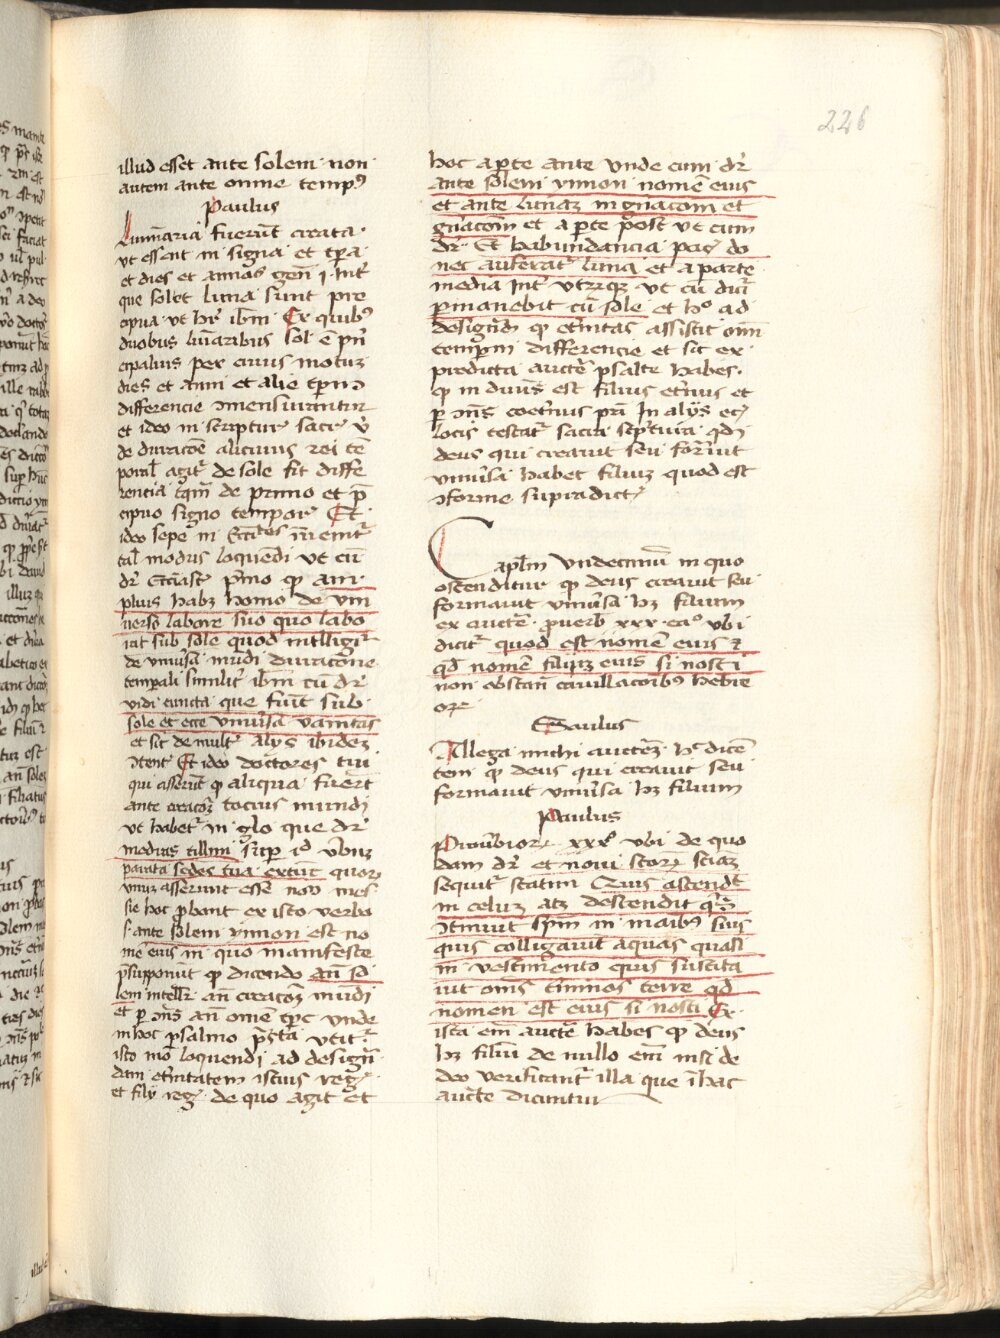 226
illud esset ante solem · non
autem ante omne temp9
Paulus
Luminaria fuerūt creata ·
ut essent in signa et tp̄a
et dies et annos gen̄ i · Int̄
que solet luna sunt pre
cipua · ut hr̄ ibm̄ Ex quib9
duobus luīaribus sol ē pn̄
cipalius per cuius motuz
dies et anni et alie tp̄m
differencie mensurantur
et ideo in scriptur̄ sacr̄
de duracōe alicuius rei tē
poral̄ agit̄ de sole fit diffe
rencia tq̄m de primo et p̄
cipuo signo tempor̄ Et
ideo sepe in Ecc̄tes inuenit̄
tal̄ modus loquēdi ut cū
dr̄ Eccłast̄ pͥmo qͥ am
plius habz homo de vni
uerso labore suo quo labo
rat sub sole quod intlligit̄
de vniusa mūdi duracōne
temperali similit̄ ibm̄ cū dr̄
vidi cuncta que fiūt sub
sole et ecce vniūsa vanitas
et sic de mult̄ alijs ibidez
Et ideo doctores tui
qui asserūt qͥ aliqua fuerūt
ante creacōz tocius mundi
ut habet̄ in glo que dr̄
medras tillim sup̄ id vbuz
parata sedes tua extūc quor
vnuz asserunt esse nom mes
sie hoc pbant ex isto verbo
s · ante solem ynnon est no
me eius in quo manifeste
p̄supponūt qͥ dicendo an̄ so
lem intellr̄ an̄ creacōz mūdi
et p̄ 9n̄s an̄ omē tp̄c vnde
in hoc psalmo p̄sta vtit̄
isto mō loquendi ad design̄
dam et̄nitatem istius reḡ
et filij reḡ de quo agit et
hoc a pte ante vnde cum dr̄
ante solem ynnon nomē eius
et ante lunaz in gn̄acom et
gn̄acōm et a pte post ut cum
dr̄ Et habundancia pac̄ do
nec auferat̄ luna et a parte
media int̄ vtrzqz ut cū dicit̄
pmanebit cū sole et ho ad
designd̄ qͥ et̄nitas assistit om̄i
temporm̄ differencie et sic ex
predicta auctē psalte habes ·
qͥ in diuīs est filius et̄nus et
p 9n̄s coet̄nus pri In alijs ec̄
locis testat̄ sacra scptura qd̄
deus qui creauit seu formīt
vniūsa habet filiuz quod est
9forme supradict̄
Caplm̄ vndecimū in quo
ostenditur qͥ deus creauit seu
formauit vniūsa hz filium
ex auctē · puerb̄ xxx · cao vbi
dicit̄ quod est nomē eius et
qd̄ nomē filijz eius si nosti
non obstan̄ cauillacoībus hebre
or̄
Saulus
Allega michi auctez · hc dicē
tem qͥ deus qui creauit seu
formauit vniūsa hz filium
Paulus
Prouubior xxx vbi de quo
dam dr̄ et noui scor̄ sciaz
sequit̄ statim Quis ascendt̄
in celuz atz descendit qis
9tinuit spm̄ in maibus suis
quis colligauit aquas quasi
in vestimento quis suscita
uit omīs timnos terre qd̄
nomen est eius si nosti Ex
ista em̄ auctē habes qͥ deus
hz filiū de nullo em̄ nisi de
deo verificant̄ illa que ī hac
auctē dicuntur